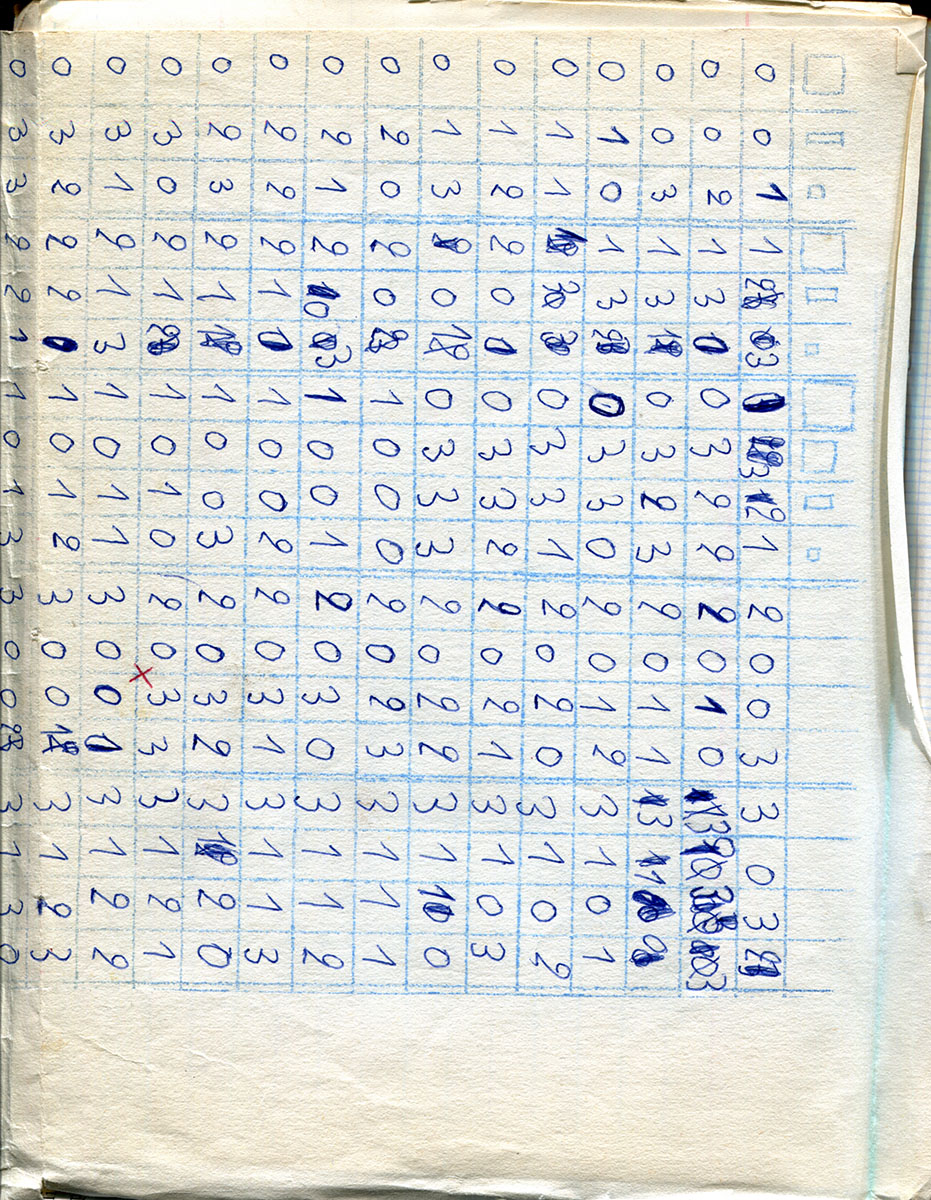 0 0 1 1 3 0 3 2 1 2 0 0 3 3 0 3
0 0 2 1 3 0 0 3 2 2 2 0 1 0 3 3
0 0 3 1 3 0 3 2 3 2 0 1 1 3 1
0 1 0 1 3 0 3 3 0 2 0 1 2 3 1 0 1
0 1 1 0 3 3 1 2 0 2 0 3 1 0 2
0 1 2 2 0 0 0 3 3 2 2 0 2 1 3 1 0 3
0 1 3 2 0 0 3 3 3 2 0 2 2 3 1 0
0 2 0 2 0 1 0 0 0 2 0 2 3 3 1 1 1
0 2 1 2 0 3 1 0 0 1 2 0 3 0 3 1 1 2
0 2 2 2 1 0 1 0 0 2 2 0 3 1 3 1 1 3
0 2 3 2 1 1 0 0 3 2 0 3 2 3 2 0
0 3 0 2 1 1 0 1 0 2 0 3 3 3 1 2 1
0 3 1 2 1 3 1 0 1 1 3 0 0 1 3 1 2 2
0 3 2 2 2 0 1 0 1 2 3 0 0 3 1 2 3
0 3 3 2 2 1 1 0 1 3 3 0 0 3 1 3 0